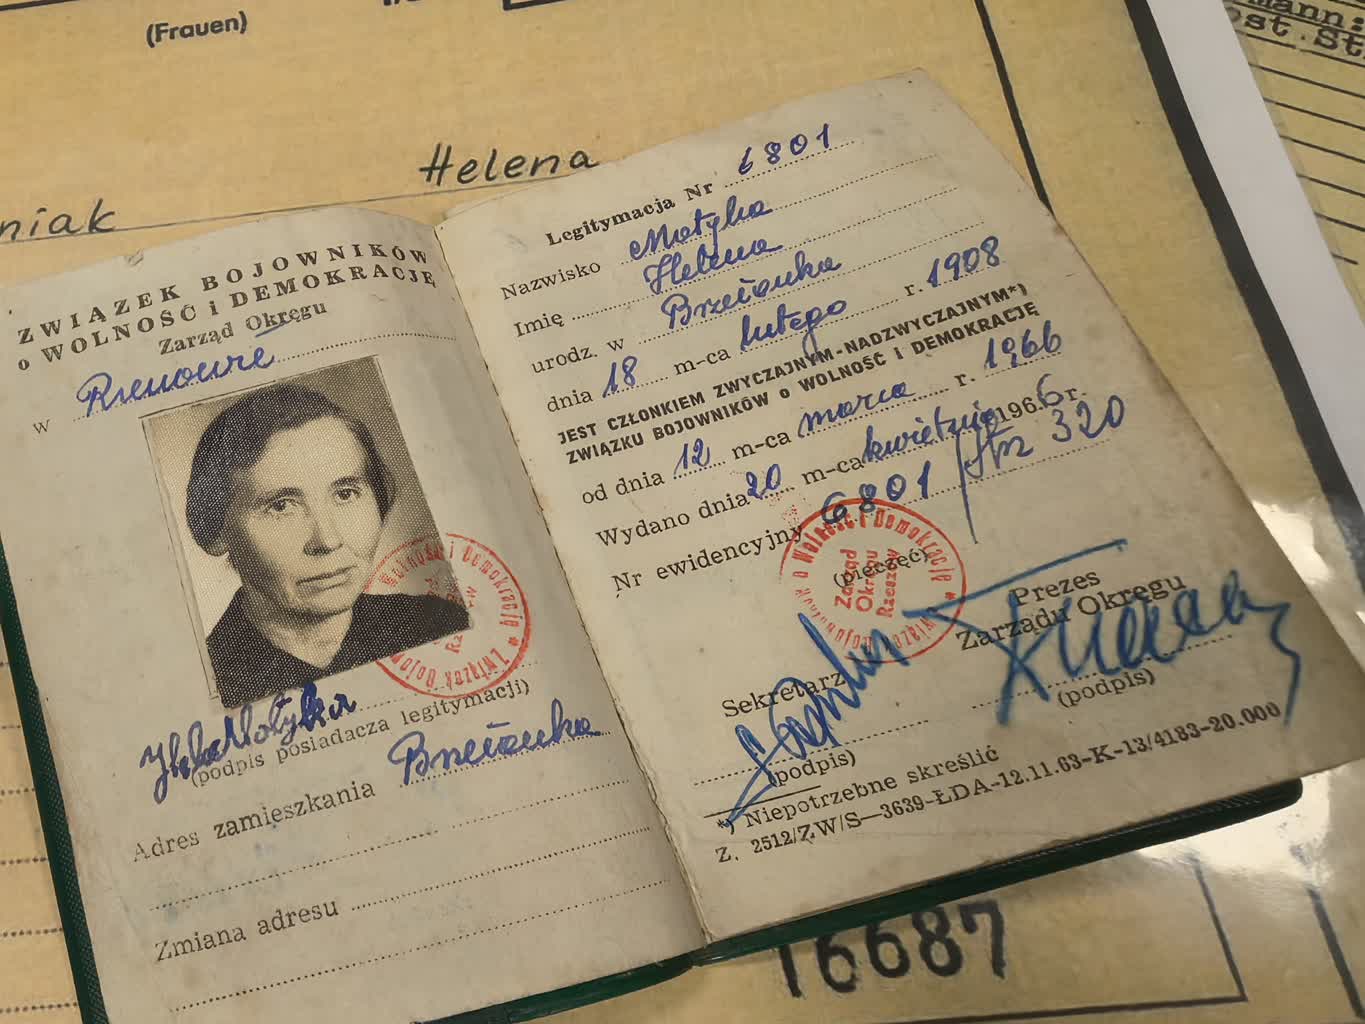 (Frauen)
Helena
niak
ZWIĄZEK BOJOWNIKÓW
o WOLNOŚĆ i DEMOKRACJĘ
Zarząd Okręgu
w Rzeszowie
(podpis posiadacza legitymacji)
Adres zamieszkania Brzezanka
Zmiana adresu
Legitymacja Nr 6801
Nazwisko Matyka
Imię Helena
urodz. w Brzezanka
dnia 18 m-ca lutego r. 1908
JEST CZŁONKIEM ZWYCZAJNYM-NADZWYCZAJNYM*)
ZWIĄZKU BOJOWNIKÓW o WOLNOŚĆ I DEMOKRACJĘ
od dnia 12 m-ca marca r. 1966
Wydano dnia 20 m-ca kwietnia 1966 r.
Nr ewidencyjny 6801 320
(pieczęć)
o Wolność i Demokrację * Związek Bojowników
Zarząd
Okręgu
Rzeszów
Prezes
Zarządu Okręgu
(podpis)
Sekretarz
(podpis)
*) Niepotrzebne skreślić
Z. 2512/ZW/S—3639-ŁDA-12.11.63-K-13/4183-20.000
16687